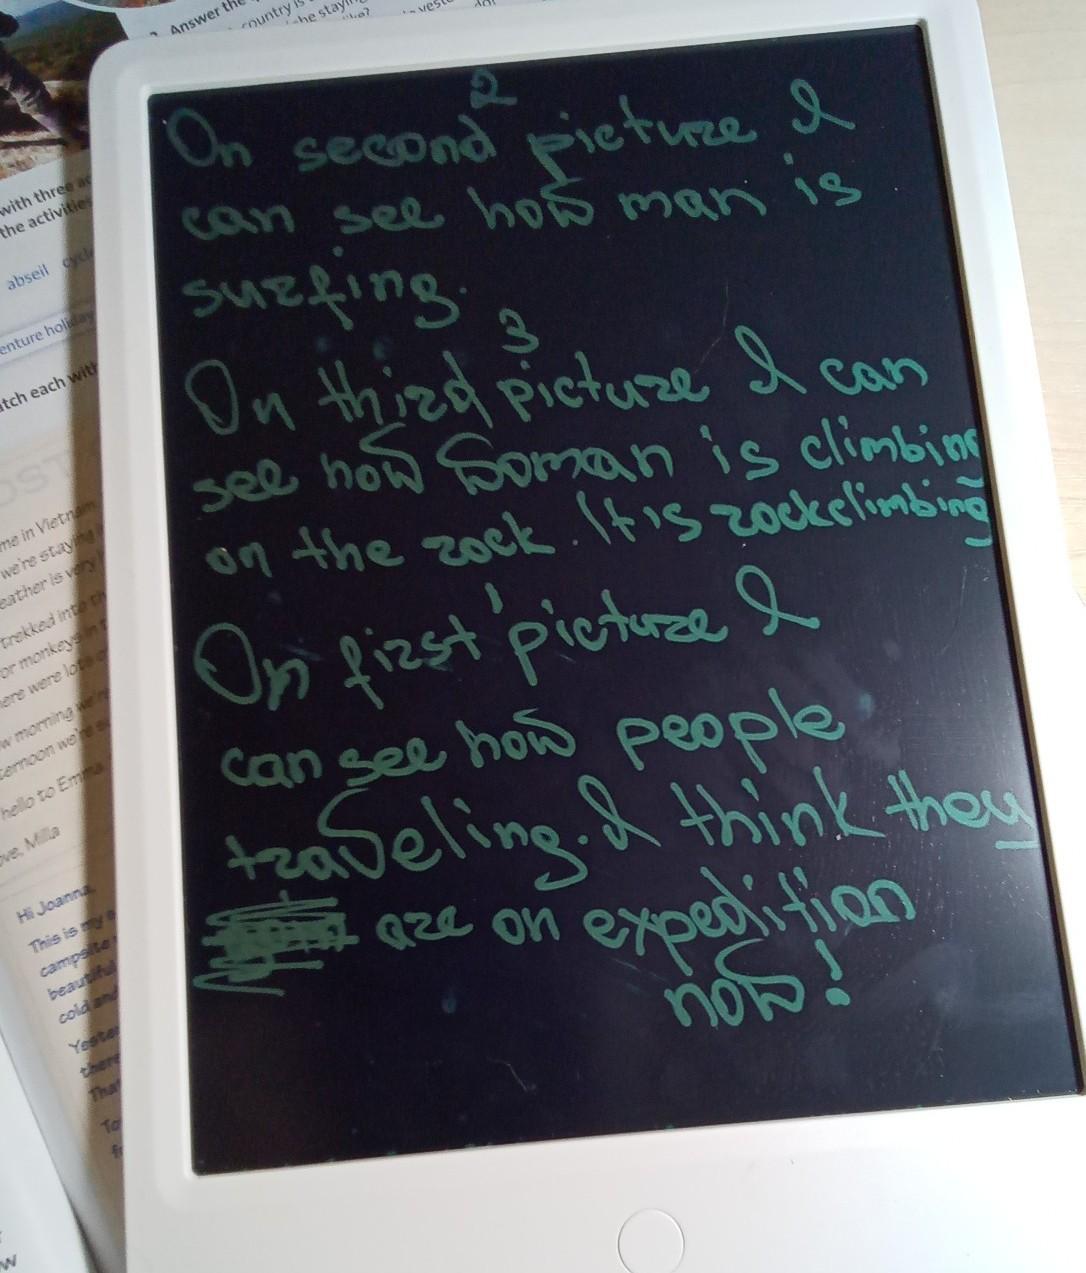 Answer the
country is
the staying
like?
yeste
with three
the activities
abseil cycle
enture holiday
atch each with
me in Vietnam
we're staying
eather is very
trekked into th
or monkeys in
here were lots
morning we're
ternoon we're
hello to Emma
ove, Milla
Hi Joanna,
This is my
campsite
beautiful
cold and
Yester
there
That
2
On second picture I
can see how man is
surfing.
3
On third picture I can
see how woman is climbing
on the rock. It is rockclimbing
1
On first picture I
can see how people
traveling. I think they
are on expedition
now!